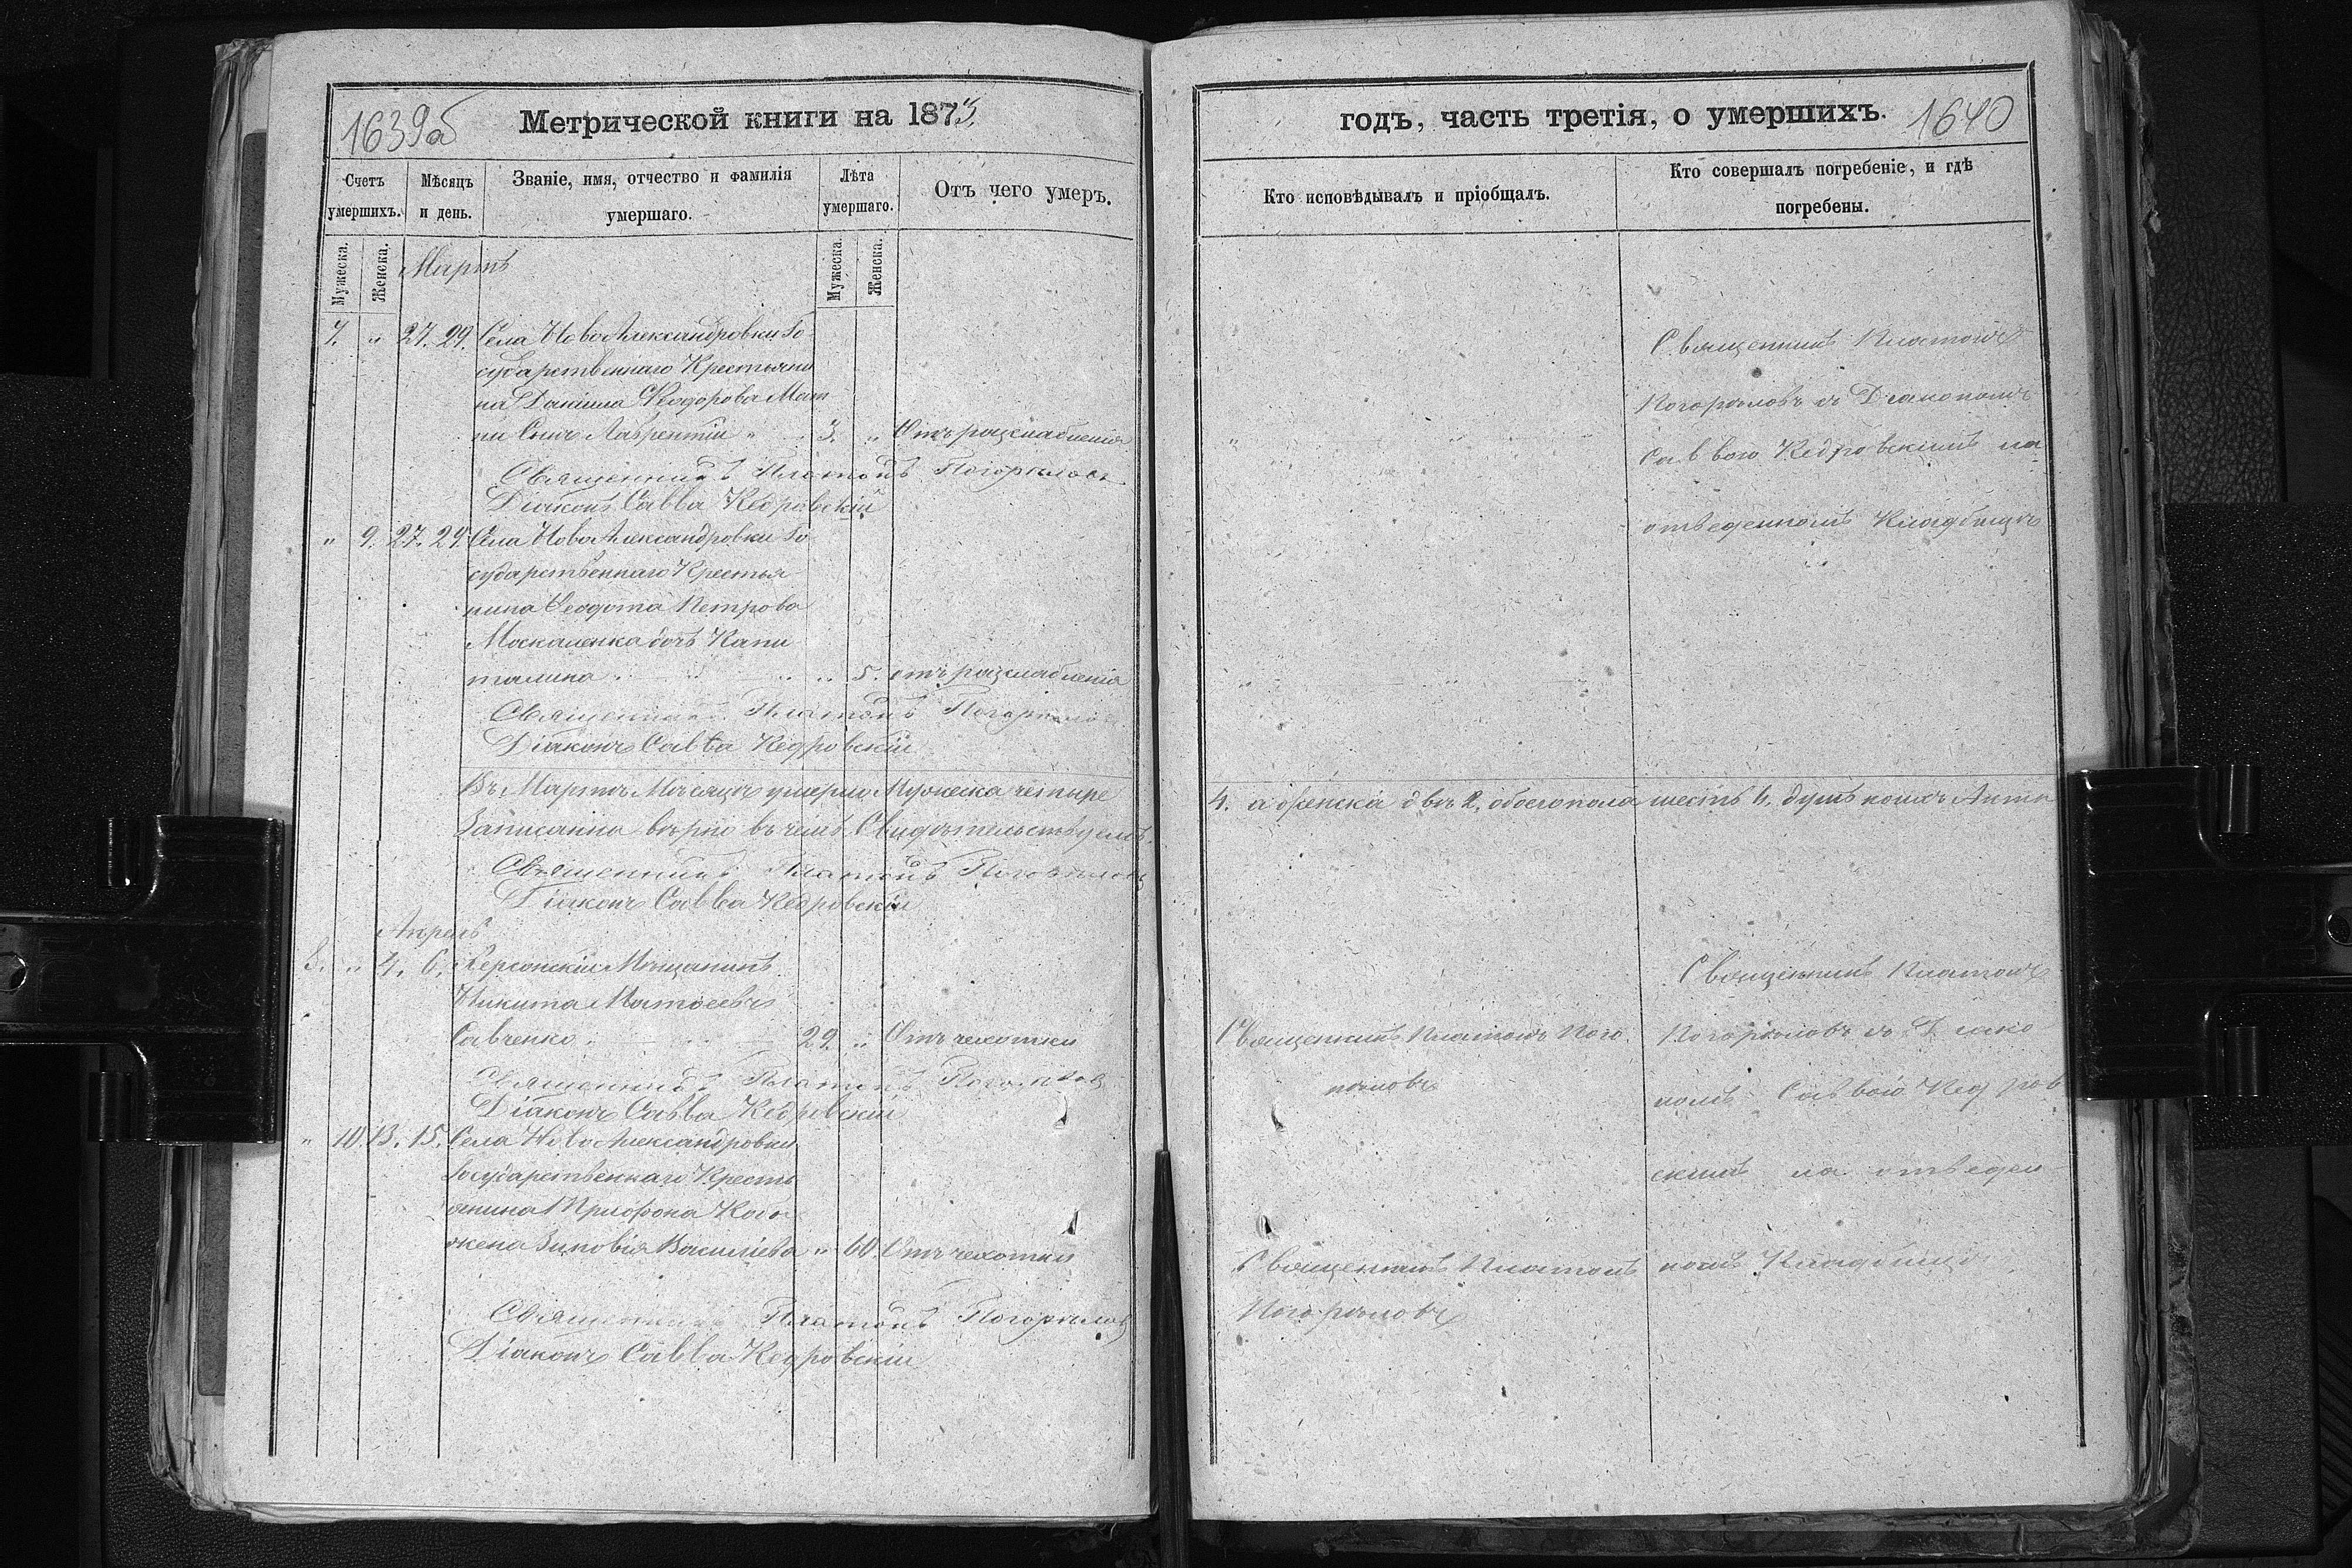 1639об
Метрической книги на 1873.
Счетъ умершихъ.
Мѣсяцъ и день.
Званіе, имя, отчество и фамилія умершаго.
Лѣта умершаго.
Отъ чего умеръ.
Мужеска.
Женска.
Мужеска.
Женска.
Мартъ
7. " 27. 29. Села Ново Александровки Го
сударственнаго Крестьяни
на Ѳеодорова
Сынъ Лаврентій " 3. " Отъ разслабленія
Священникъ Платонъ Погорѣловъ
Діаконъ Савва Кедровскій
" 9. 27. 29. Села Ново Александровки Го
сударственнаго Крестья
нина Ѳеодота Петрова
Москаленка дочь Капи
талина " " 5. отъ разслабленія
Священникъ Платонъ Погорѣловъ
Діаконъ Савва Кедровскій
Въ Мартѣ Мѣсяцѣ умерло Мужеска четыре
Записанно вѣрно въ чемъ Свидѣтельствуемъ
Священникъ Платонъ Погорѣловъ
Діаконъ Савва Кедровскій
Апрель
8. " 4. 6. Херсонскій Мѣщанинъ
Никита Матѳеевъ
Савченко 29. " Отъ чехотки
Священникъ Платонъ Погорѣловъ
Діаконъ Савва Кедровскій
" 10. 13. 15. Села Ново Александровки
Государственнаго Кресть
янина Трифона
жена Зиновія Василіева " 60. Отъ чехотки
Священникъ Платонъ Погорѣловъ
Діаконъ Савва Кедровскій
годъ, часть третія, о умершихъ.
1640
Кто исповѣдывалъ и пріобщалъ.
Кто совершалъ погребеніе, и гдѣ погребены.
Священникъ Платонъ
Погорѣловъ съ Діакономъ
Саввою Кедровскимъ на
отведенномъ Кладбищѣ
4. а женска двѣ 2. обоего пола шесть 6. душъ
Священникъ Платонъ Пого
рѣловъ
Священникъ Платонъ
Погорѣловъ
Священникъ Платонъ
Погорѣловъ съ Діако
номъ Саввою Кедров
скимъ на отведен
номъ Кладбищѣ